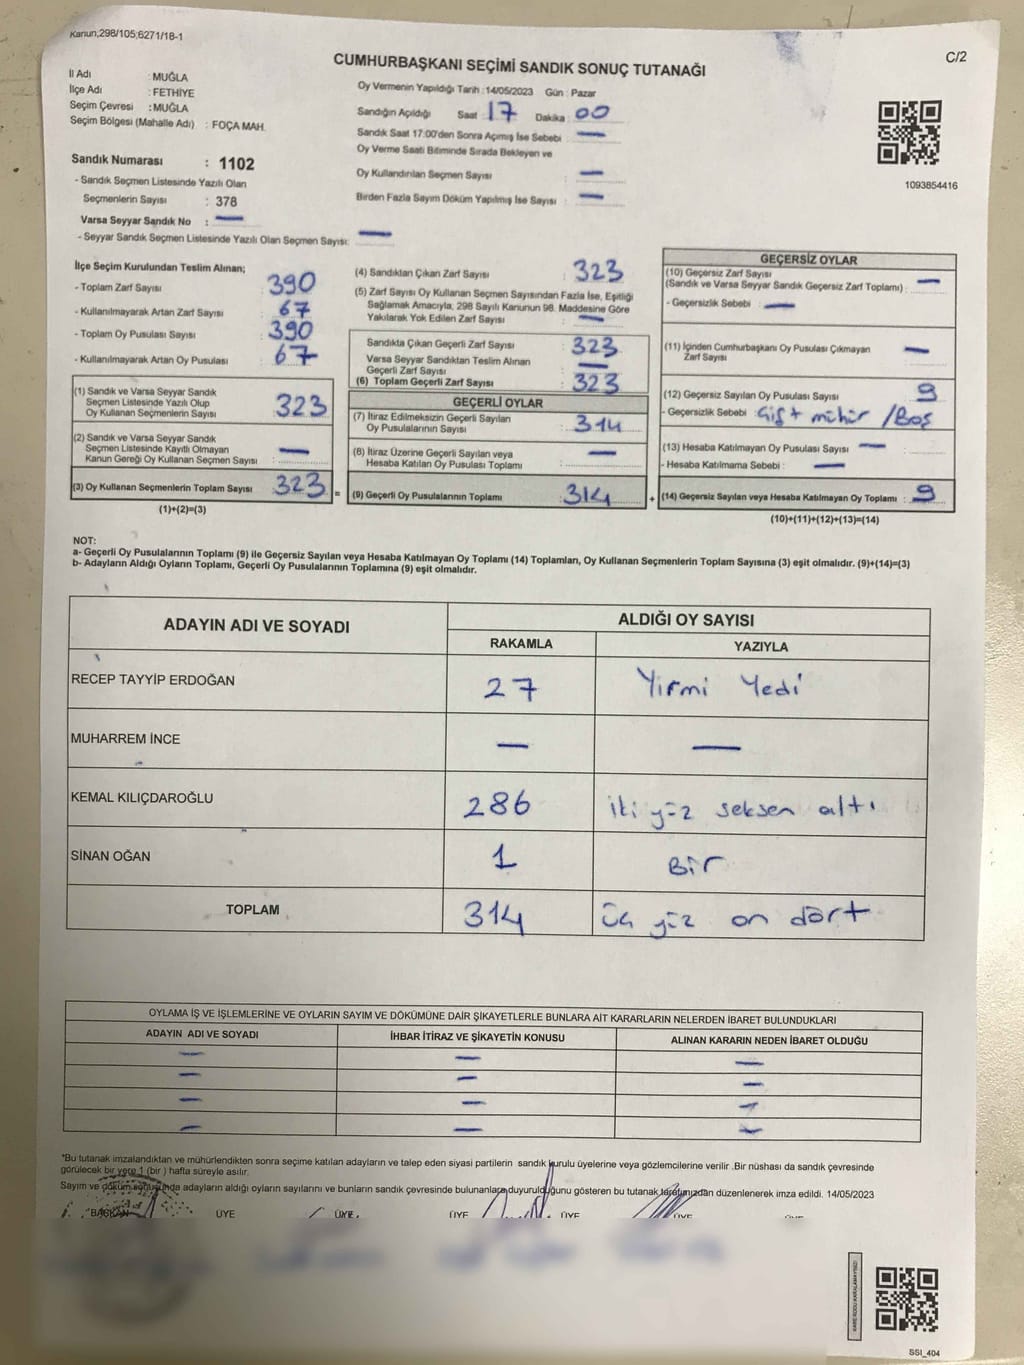 Kanun;298/105;6271/18-1
CUMHURBAŞKANI SEÇİMİ SANDIK SONUÇ TUTANAĞI
C/2
İl Adı : MUĞLA
İlçe Adı : FETHİYE
Seçim Çevresi : MUĞLA
Seçim Bölgesi (Mahalle Adı) : FOÇA MAH.
Sandık Numarası : 1102
- Sandık Seçmen Listesinde Yazılı Olan
Seçmenlerin Sayısı : 378
Varsa Seyyar Sandık No : —
- Seyyar Sandık Seçmen Listesinde Yazılı Olan Seçmen Sayısı: —
Oy Vermenin Yapıldığı Tarih :14/05/2023 Gün : Pazar
Sandığın Açıldığı Saat : 17 Dakika : 00
Sandık Saat 17:00'den Sonra Açımış İse Sebebi : —
Oy Verme Saati Bitiminde Sırada Bekleyen ve
Oy Kullandırılan Seçmen Sayısı : —
Birden Fazla Sayım Döküm Yapılmış İse Sayısı : —
1093854416
İlçe Seçim Kurulundan Teslim Alınan;
- Toplam Zarf Sayısı : 390
- Kullanılmayarak Artan Zarf Sayısı : 67
- Toplam Oy Pusulası Sayısı : 390
- Kullanılmayarak Artan Oy Pusulası : 67
(1) Sandık ve Varsa Seyyar Sandık
Seçmen Listesinde Yazılı Olup
Oy Kullanan Seçmenlerin Sayısı : 323
(2) Sandık ve Varsa Seyyar Sandık
Seçmen Listesinde Kayıtlı Olmayan
Kanun Gereği Oy Kullanan Seçmen Sayısı : —
(3) Oy Kullanan Seçmenlerin Toplam Sayısı : 323 =
(1)+(2)=(3)
(4) Sandıktan Çıkan Zarf Sayısı : 323
(5) Zarf Sayısı Oy Kullanan Seçmen Sayısından Fazla İse, Eşitliği
Sağlamak Amacıyla, 298 Sayılı Kanunun 98. Maddesine Göre
Yakılarak Yok Edilen Zarf Sayısı : —
Sandıkta Çıkan Geçerli Zarf Sayısı : 323
Varsa Seyyar Sandıktan Teslim Alınan
Geçerli Zarf Sayısı : —
(6) Toplam Geçerli Zarf Sayısı : 323
GEÇERLİ OYLAR
(7) İtiraz Edilmeksizin Geçerli Sayılan
Oy Pusulalarının Sayısı : 314
(8) İtiraz Üzerine Geçerli Sayılan veya
Hesaba Katılan Oy Pusulası Toplamı : —
(9) Geçerli Oy Pusulalarının Toplamı : 314 +
GEÇERSİZ OYLAR
(10) Geçersiz Zarf Sayısı
(Sandık ve Varsa Seyyar Sandık Geçersiz Zarf Toplamı) : —
- Geçersizlik Sebebi : —
(11) İçinden Cumhurbaşkanı Oy Pusulası Çıkmayan
Zarf Sayısı : —
(12) Geçersiz Sayılan Oy Pusulası Sayısı : 9
- Geçersizlik Sebebi : Çift mühür / Boş
(13) Hesaba Katılmayan Oy Pusulası Sayısı : —
- Hesaba Katılmama Sebebi : —
(14) Geçersiz Sayılan veya Hesaba Katılmayan Oy Toplamı : 9
(10)+(11)+(12)+(13)=(14)
NOT:
a- Geçerli Oy Pusulalarının Toplamı (9) ile Geçersiz Sayılan veya Hesaba Katılmayan Oy Toplamı (14) Toplamları, Oy Kullanan Seçmenlerin Toplam Sayısına (3) eşit olmalıdır. (9)+(14)=(3)
b- Adayların Aldığı Oyların Toplamı, Geçerli Oy Pusulalarının Toplamına (9) eşit olmalıdır.
ADAYIN ADI VE SOYADI ALDIĞI OY SAYISI
RAKAMLA YAZIYLA
RECEP TAYYİP ERDOĞAN 27 Yirmi Yedi
MUHARREM İNCE — —
KEMAL KILIÇDAROĞLU 286 iki yüz seksen altı
SİNAN OĞAN 1 Bir
TOPLAM 314 üç yüz on dört
OYLAMA İŞ VE İŞLEMLERİNE VE OYLARIN SAYIM VE DÖKÜMÜNE DAİR ŞİKAYETLERLE BUNLARA AİT KARARLARIN NELERDEN İBARET BULUNDUKLARI
ADAYIN ADI VE SOYADI İHBAR İTİRAZ VE ŞİKAYETİN KONUSU ALINAN KARARIN NEDEN İBARET OLDUĞU
— — —
— — —
— — —
— — —
*Bu tutanak imzalandıktan ve mühürlendikten sonra seçime katılan adayların ve talep eden siyasi partilerin sandık kurulu üyelerine veya gözlemcilerine verilir .Bir nüshası da sandık çevresinde
görülecek bir yere 1 (bir ) hafta süreyle asılır.
Sayım ve döküm sonucunda adayların aldığı oyların sayılarını ve bunların sandık çevresinde bulunanlara duyurulduğunu gösteren bu tutanak tarafımızdan düzenlenerek imza edildi. 14/05/2023
BAŞKAN ÜYE ÜYE ÜYE ÜYE ÜYE
SSI_404